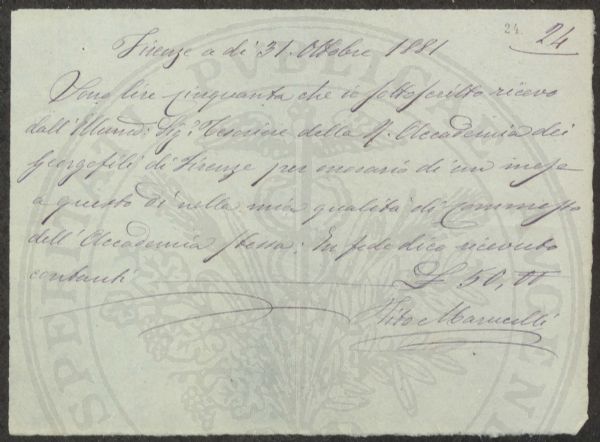 24. 24
Firenze a di 31. Ottobre 1881
Sono lire cinquanta che io sottoscritto ricevo
dall'Illumo: Sig: Tesoriere della R. Accademia dei
Georgofili di Firenze per onorario di un mese
a questo dì nella mia qualità di Commesso
dell'Accademia stessa: In fede dico ricevuto
contanti £ 50,
Vito Marucelli
PVBLICAE